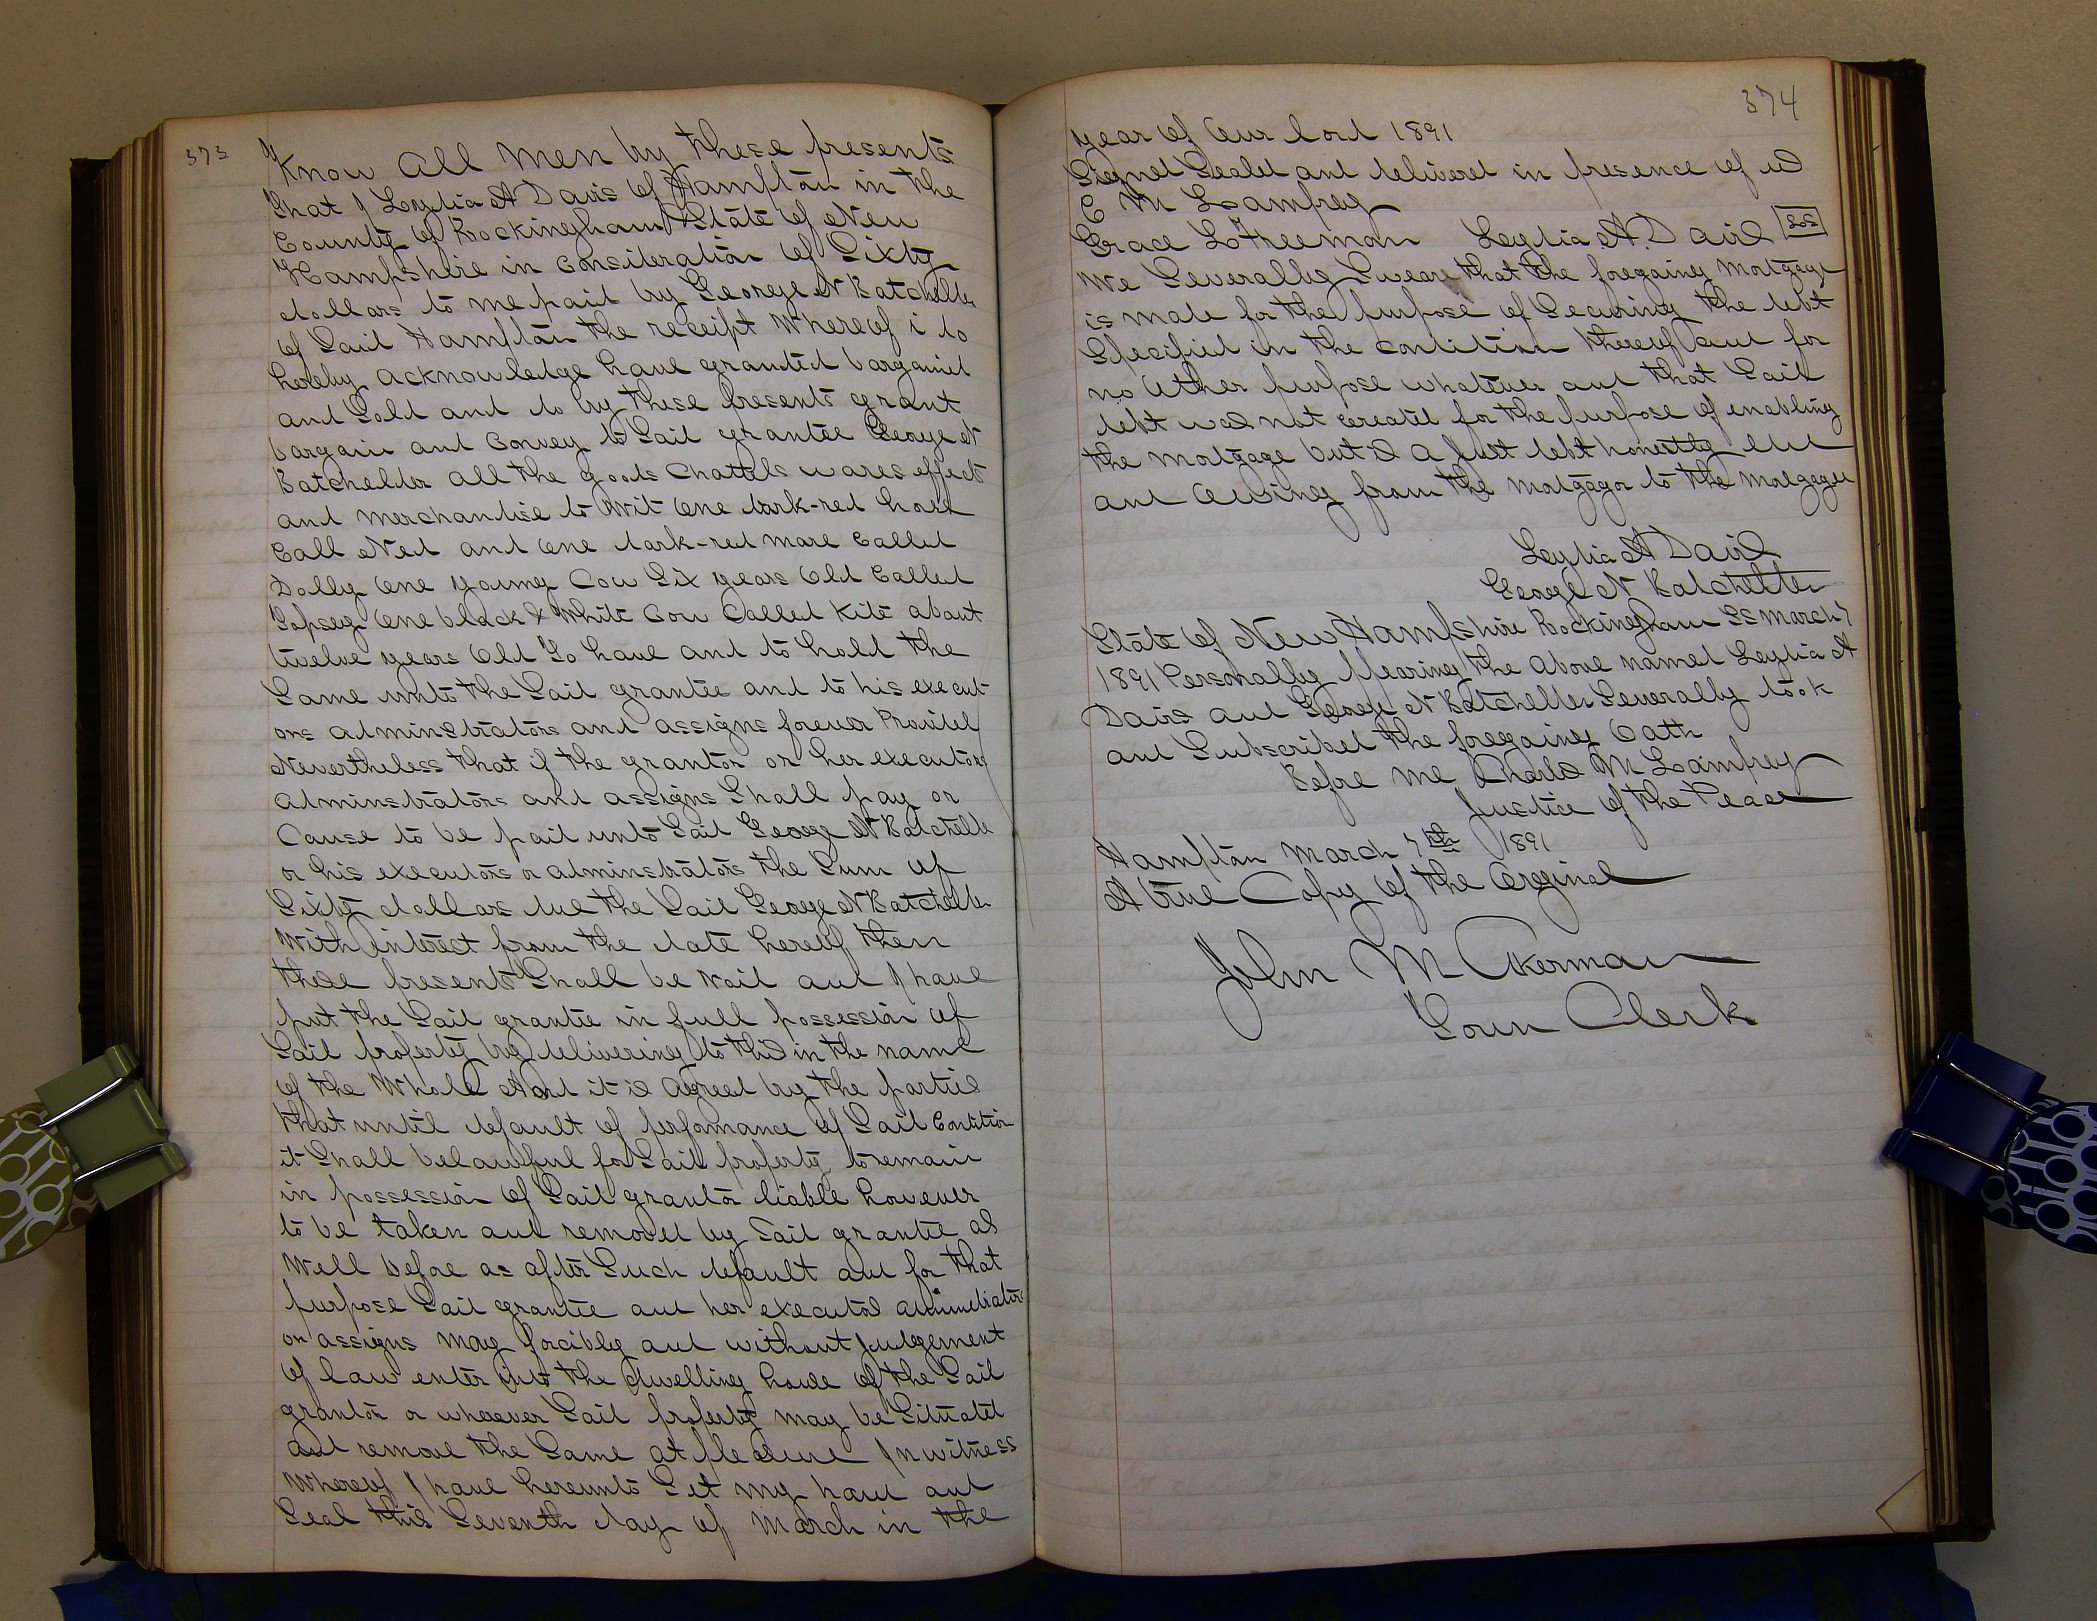 373
Know All Men by these presents
that I Lydia A Davis of Hampton in the
County of Rockingham State of New
Hampshire in consideration of Sixty
dollars to me paid by George N Batchelder
of Said Hampton the receipt whereof i do
hereby acknowledge have granted bargained
and Sold and do by these presents grant
bargain and convey to Said grantee George N
Batchelder all the goods Chattels wares effects
and merchandise to Wit One dark-red horse
Call Ned and one dark-red mare Called
Dolly One young Cow Six years Old Called
Gipsey One black & White Cow Called Kite about
twelve years Old To have and to hold the
Same unto the Said grantee and to his execut
ors adminstrators and assigns forever Provided
Nevertheless that if the grantor or her executors
adminstrators and assigns Shall pay or
Cause to be paid unto Said George N Batchelder
or his executors or adminstrators the Sum of
Sixty dollars due the Said George N Batchelder
With interest from the date hereof then
these presents Shall be void and I have
put the Said grantee in full possession of
Said property by delivering to this in the name
of the Whole And it is Agreed by the parties
that until default of performance of Said Condition
it Shall be lawful for Said property to remain
in possession of Said grantor liable however
to be taken and removed by Said grantee as
Well before as after Such default and for that
purpose Said grantee and her executors
or assigns may forcibly and without Judgement
of law enter into the dwelling house of the Said
grantor or wherever Said property may be Situated
and remove the Same at pleasure In witness
Whereof I have hereunto Set my hand and
Seal this Seventh day of March in the
374
year of Our Lord 1891
Signed Sealed and delivered in presence of us
C M Lamprey
Grace L Freeman Lydia A. Davis LS
We Severally Sweare that the foregoing mortgage
is made for the purpose of Securing the debt
Specified in the condition thereof and for
no Other purpose whatever and that Said
debt was not created for the purpose of enabling
the mortgage but is a just debt honestly due
and Owing from the mortgagor to the mortgagee
Lydia A Davis
George N Batchelder
State of New Hampshire Rockingham SS March 7
1891 Personally the above named Lydia A
Davis and George N Batchelder Severally took
and Subscribed the foregoing Oath
Before me Charles M Lamprey
Justice of the Peace
Hampton March 7th 1891
A true Copy of the Orginal
John M Akerman
Town Clerk